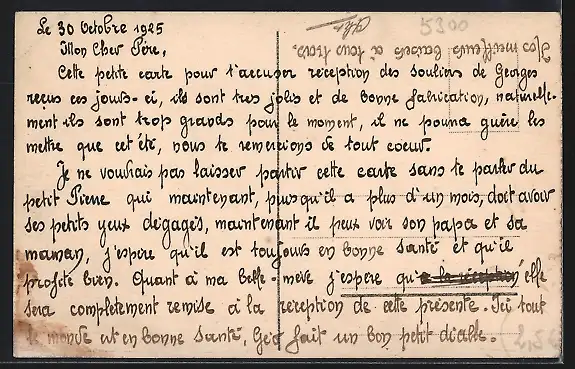 Le 30 Octobre 1925
5300
Mon Cher Père,
Mes meilleurs baisers à tous trois.
Cette petite carte pour t'accuser réception des souliers de Georges
reçus ces jours-ci, ils sont très jolis et de bonne fabrication, naturelle-
ment ils sont trop grands pour le moment, il ne pourra guère les
mettre que cet été, nous te remercions de tout coeur.
Je ne voudrais pas laisser partir cette carte sans te parler du
petit Pierre qui maintenant, puisqu'il a plus d'un mois, doit avoir
ses petits yeux dégagés, maintenant il peux voir son papa et sa
maman, j'espère qu'il est toujours en bonne santé et qu'il
profite bien. Quant à ma belle-mère j'espère qu'elle
sera complètement remise à la réception de cette présente. Ici tout
le monde est en bonne santé, Geo fait un bon petit diable.